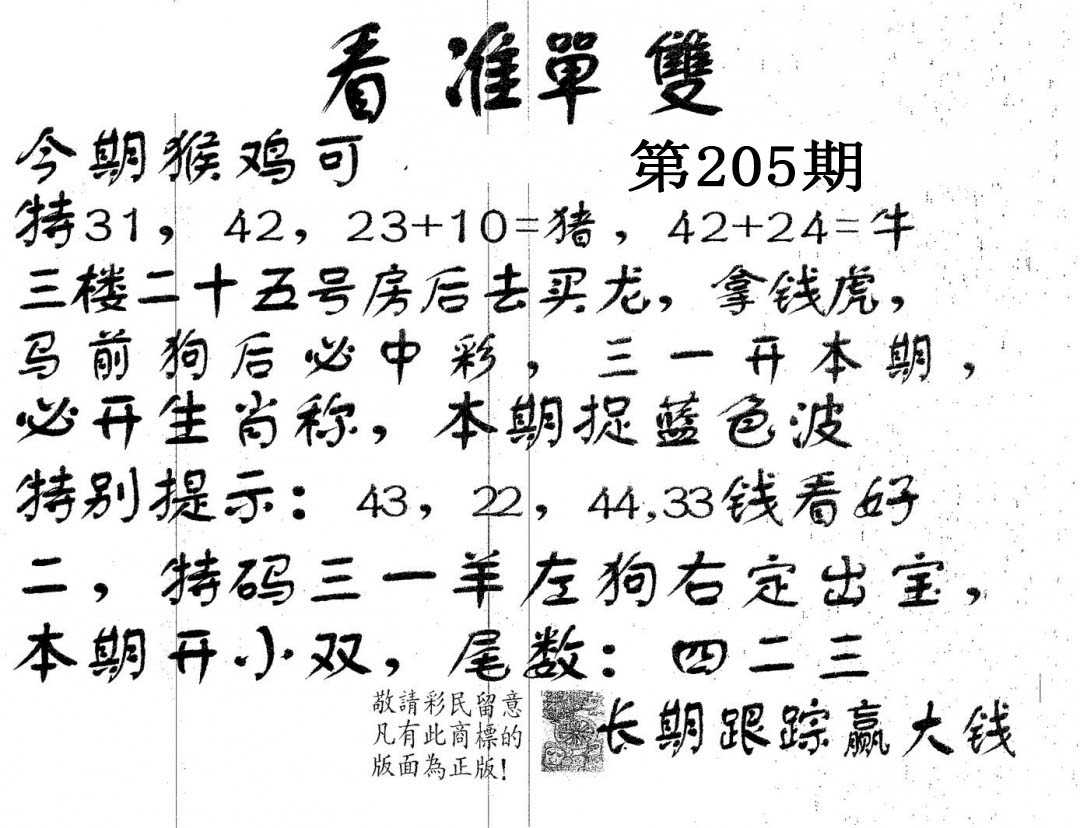 看准單雙
今期猴鸡可
第205期
特31，42，23+10=猪，42+24=牛
三楼二十五号房后去买龙，拿钱虎，
马前狗后必中彩，三一开本期，
必开生肖称，本期捉蓝色波
特别提示：43，22，44,33钱看好
二，特码三一羊左狗右定出宝，
本期开小双，尾数：四二三
敬請彩民留意
凡有此商標的
版面為正版！
长期跟踪赢大钱